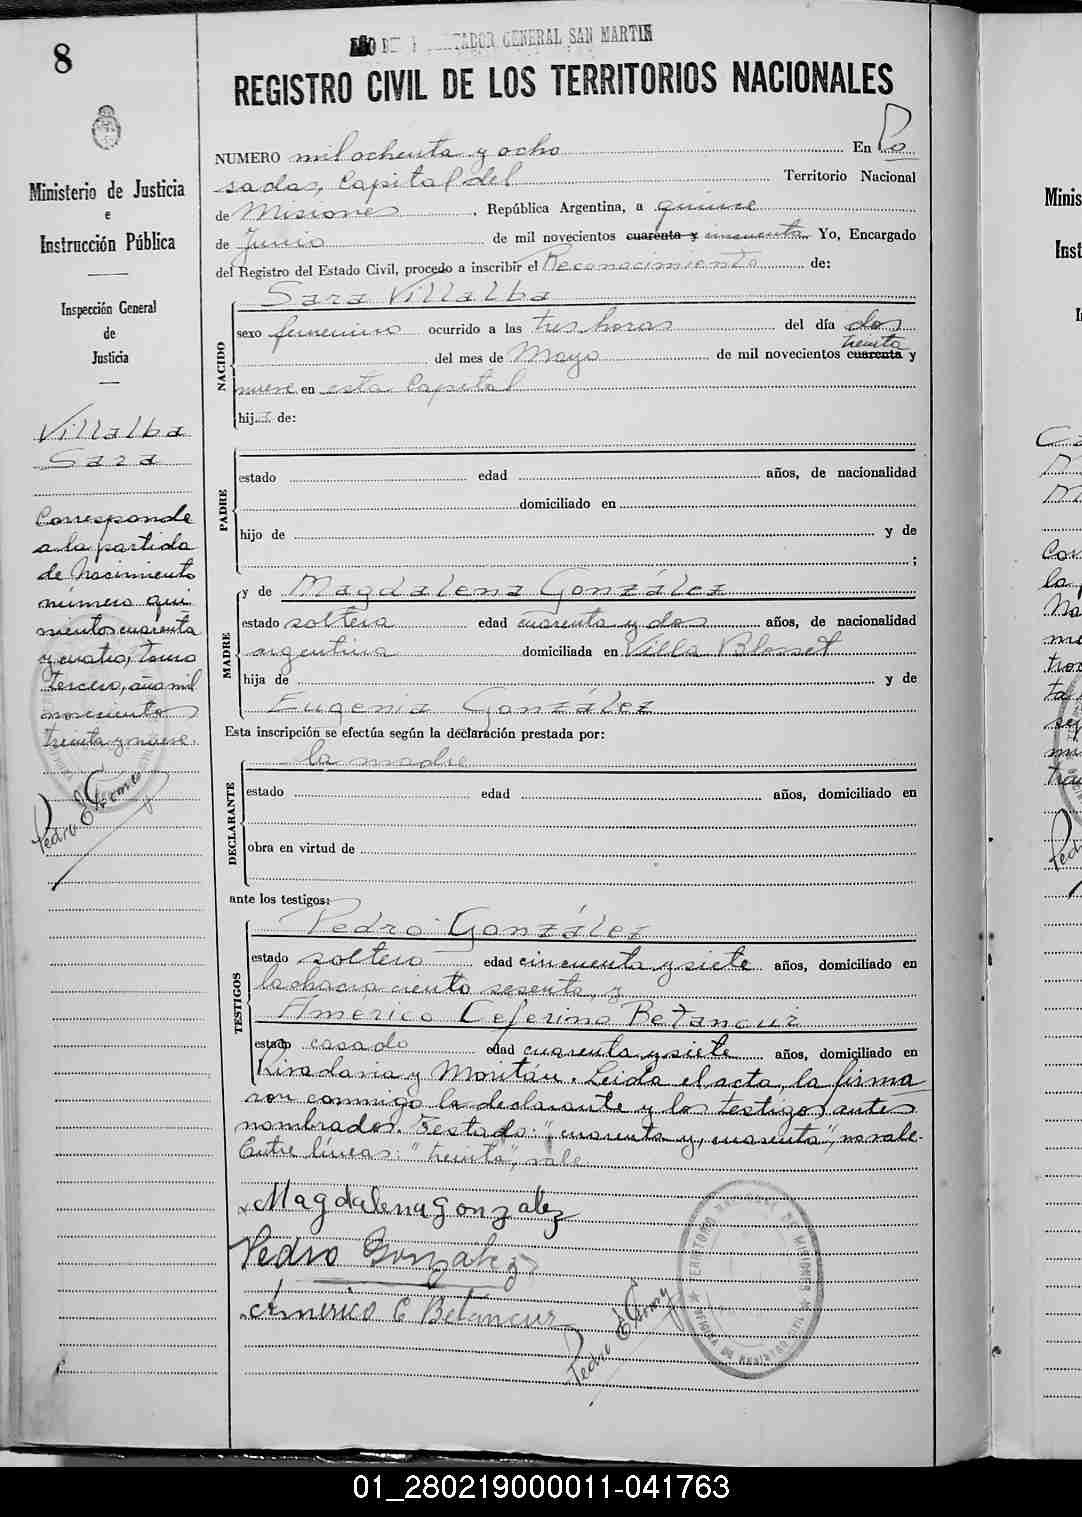 8
AÑO DEL LIBERTADOR GENERAL SAN MARTIN
REGISTRO CIVIL DE LOS TERRITORIOS NACIONALES
Ministerio de Justicia
e
Instrucción Pública
Inspección General
de
Justicia
Villalba
Sara
Corresponde
a la partida
de Nacimiento
número qui
nientos cuarenta
y cuatro, tomo
tercero, año mil
novecientos
treinta y nueve.
NUMERO mil ochenta y ocho En Po
sadas, Capital del Territorio Nacional
de Misiones, República Argentina, a quince
de Junio de mil novecientos cuarenta y cincuenta Yo, Encargado
del Registro del Estado Civil, procedo a inscribir el Reconocimiento de:
Sara Villalba
NACIDO
sexo femenino ocurrido a las tres horas del día dos
treinta
del mes de Mayo de mil novecientos cuarenta y
nueve en esta Capital
hija de:
PADRE
estado edad años, de nacionalidad
domiciliado en
hijo de y de
;
MADRE
y de Magdalena González
estado soltera edad cuarenta y dos años, de nacionalidad
argentina domiciliada en Villa Blosset
hija de y de
Eugenia González
Esta inscripción se efectúa según la declaración prestada por:
la madre
DECLARANTE
estado edad años, domiciliado en
obra en virtud de
ante los testigos:
TESTIGOS
Pedro González
estado soltero edad cincuenta y siete años, domiciliado en
la chacra ciento sesenta, y
Américo Ceferino Betancur
estado casado edad cuarenta y siete años, domiciliado en
Rivadavia y Moritán. Leida el acta, la firma
ron conmigo la declarante y los testigos antes
nombrados. Testado: "cuarenta y, cuarenta", no vale.
Entre líneas: "treinta", vale
Magdalena Gonzalez
Pedro Gonzalez
Américo C Betáncur
TERRITORIO NACIONAL DE MISIONES
OFICINA DE REGISTRO CIVIL
01_280219000011-041763
Minis
Inst